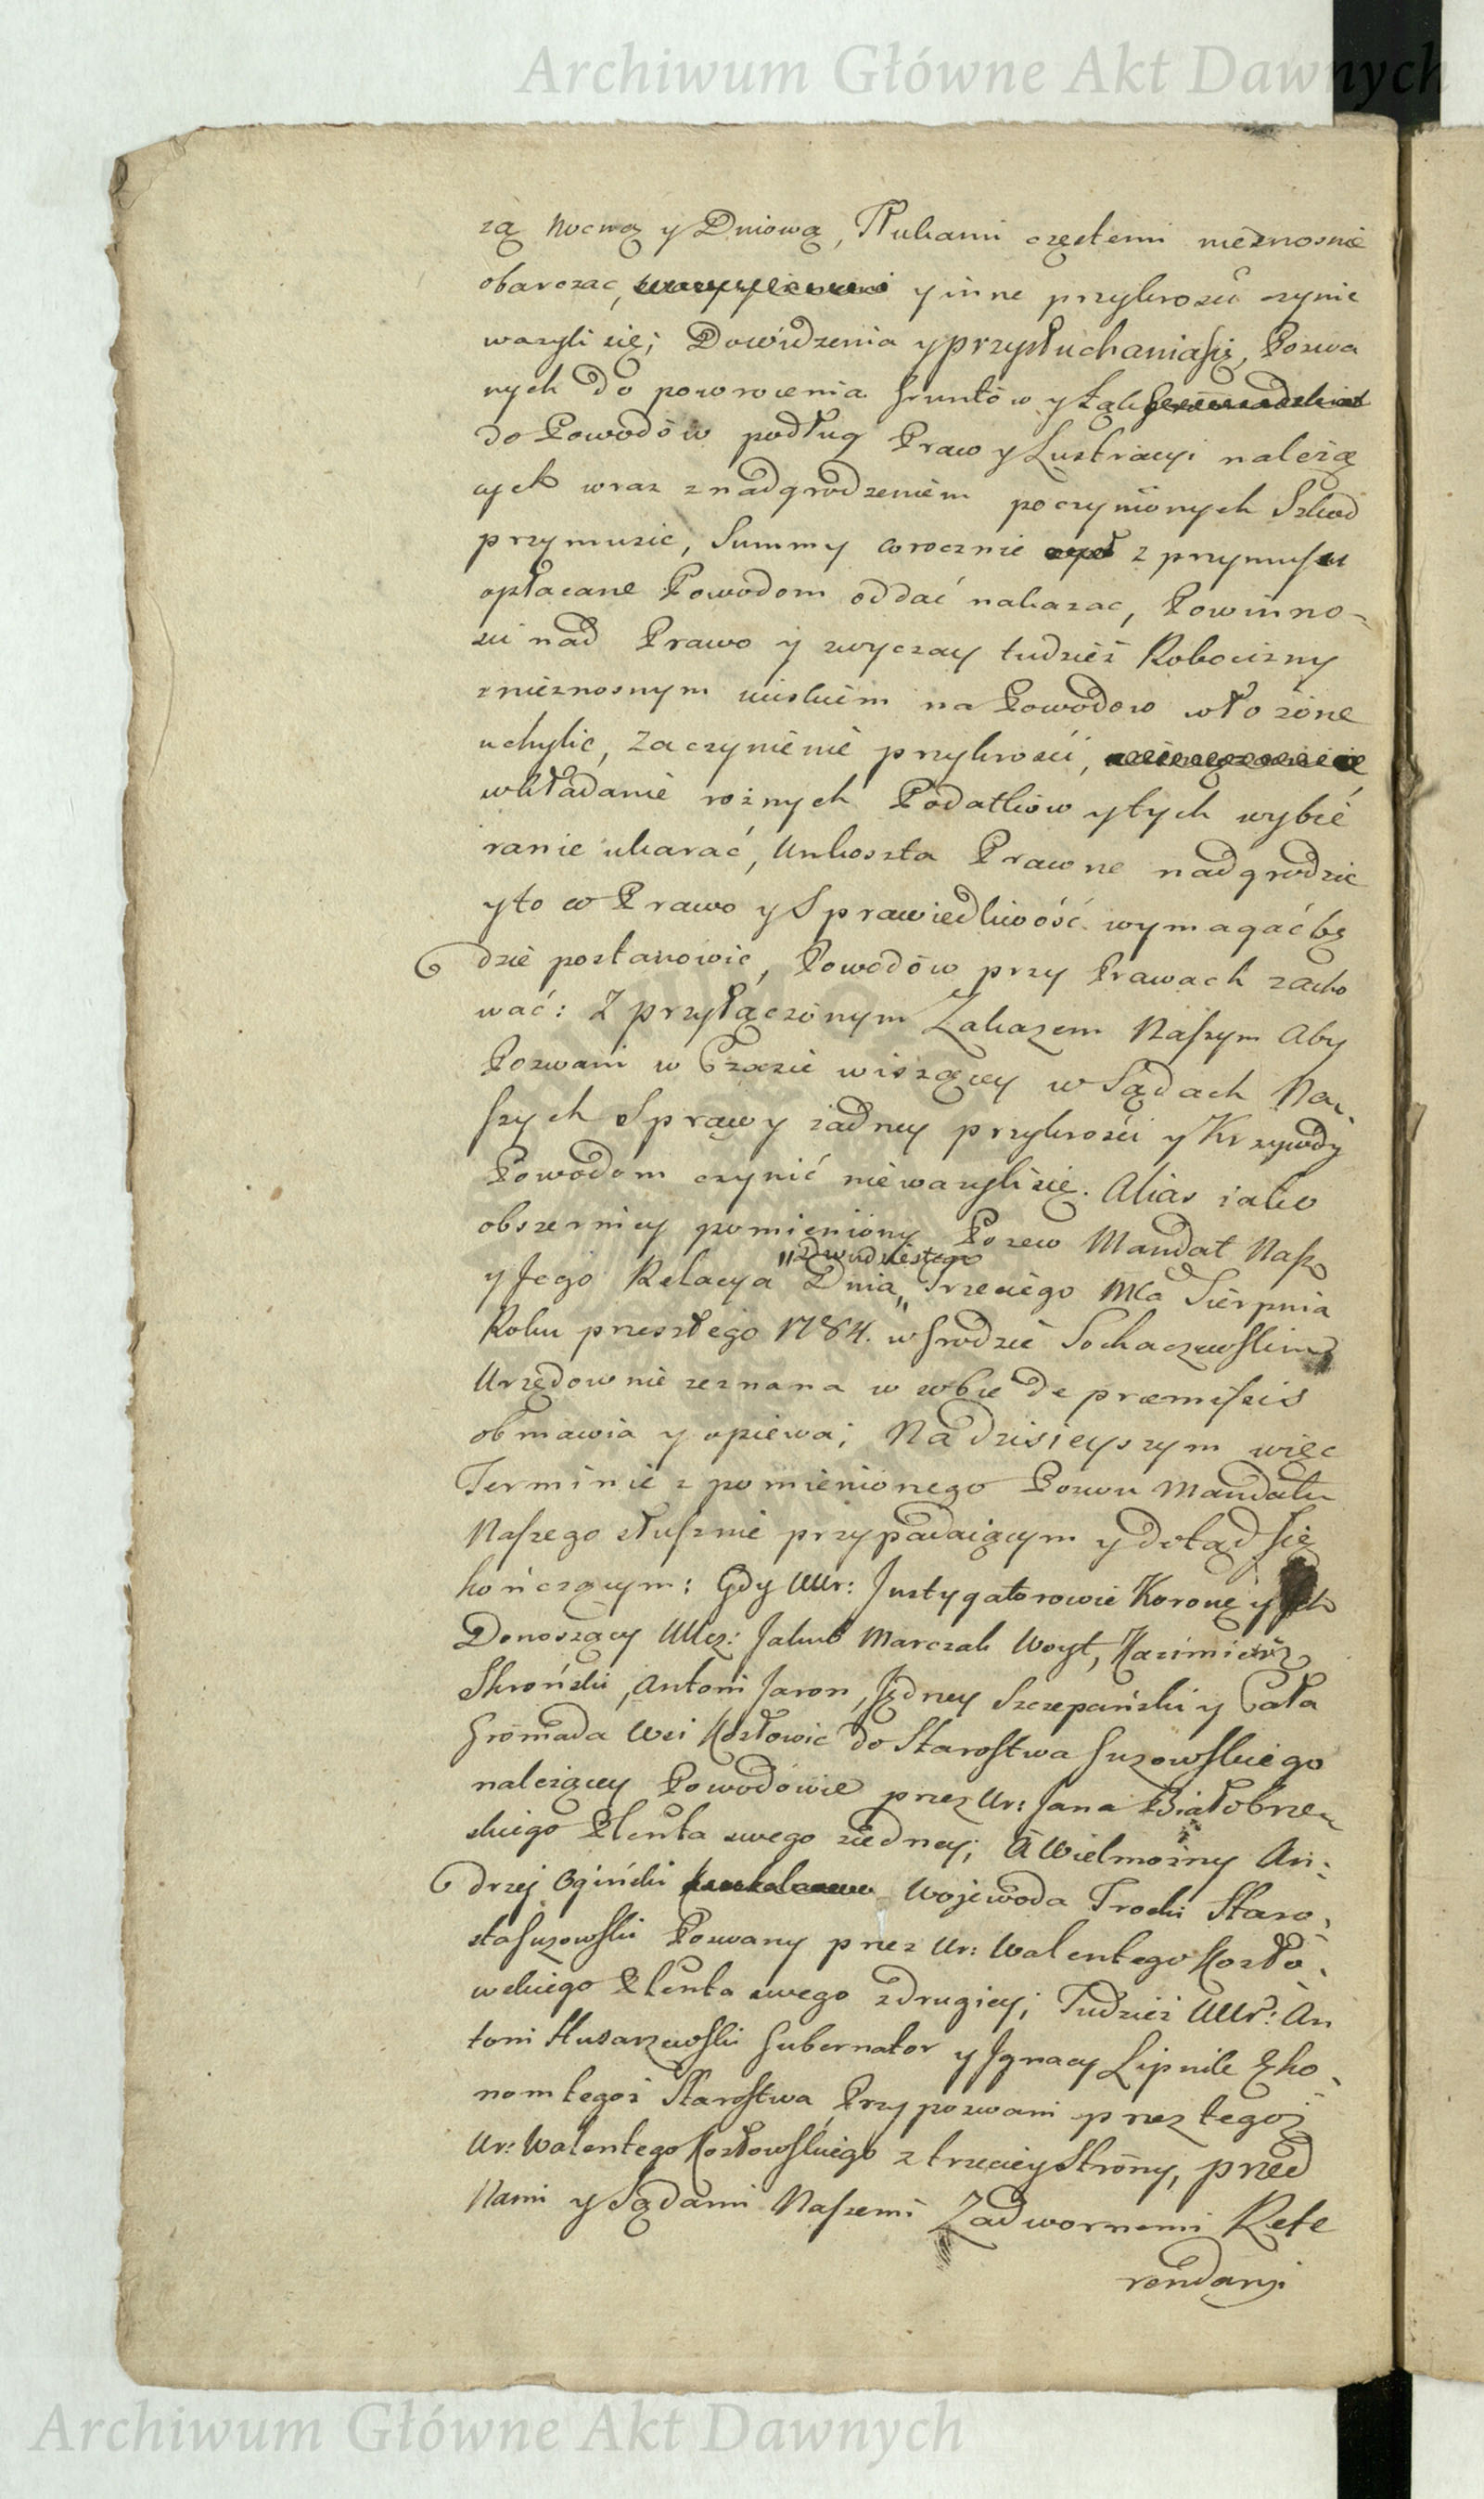 Archiwum Główne Akt Dawnych
zą Nocną y Dniową, Tłukami częstemi nieznosnie
obarczac, y inne przykrości czynic
wazyli się; Dowidzenia y przysłuchania się, Pozwa
nych do powrocenia Gruntów y Łąk
do Powodów podług Praw y Lustracyi należą
cych wraz z nadgrodzeniem poczynionych Szkod
przymusic, Summy corocznie z przymusu
opłacane Powodom oddać nakazac, Powinno-
sci nad Prawo y zwyczay tudzież Robocizny
z nieznosnym uciskiem na Powodow włożone
uchylic, za czynienie przykrości,
wkładanie rożnych Podatkow y tych wybie
ranie ukarać, Unkoszta Prawne nadgrodzic
y to co Prawo y Sprawiedliwość wymagać bę
dzie postanowic, Powodów przy Prawach zacho
wać: Z przyłączonym Zakazem Naszym Aby
Pozwani w Czasie wiszącey w Sądach Na-
szych Sprawy żadney przykrości y Krzywdy
Powodom czynić nieważyli się. Alias iako
obszerniey pomieniony Pozew Mandat Nasz
"dwudziestego
y Jego Relacya Dnia" Trzeciego Mca Sierpnia
Roku przeszłego 1784. w Grodzie Sochaczewskim
Urzędownie zeznana w sobie de præmissis
obmawia y opiewa; Na dzisieyszym więc
Terminie z pomienionego Pozwu Mandatu
Naszego słusznie przypadaiącym y dotąd się
kończącym: Gdy UUr: Instygatorowie Koronę y Ich
Donoszący UUcz: Jakub Marczak Woyt, Kazimierz
Skroński, Antoni Jaron, Jędrzey Szczepański y Cała
Gromada Wsi Kozłowic do Starostwa Guzowskiego
należącey Powodowie przez Ur: Jana Białobrze-
skiego Plenta swego z iedney; A Wielmożny An-
drzej Ogiński Wojewoda Trocki Staro-
sta Guzowski Pozwany przez Ur: Walentego Kozło-
wskiego Plenta swego z drugiey; Tudzież UUr: An
toni Husarzewski Gubernator y Ignacy Lipnik Eko-
nom tegoż Starostwa Przypozwani przez tegoż
Ur: Walentego Kozłowskiego z trzeciey Strony, przed
Nami y Sądami Naszemi Zadwornemi Refe
rendarzi
Archiwum Główne Akt Dawnych